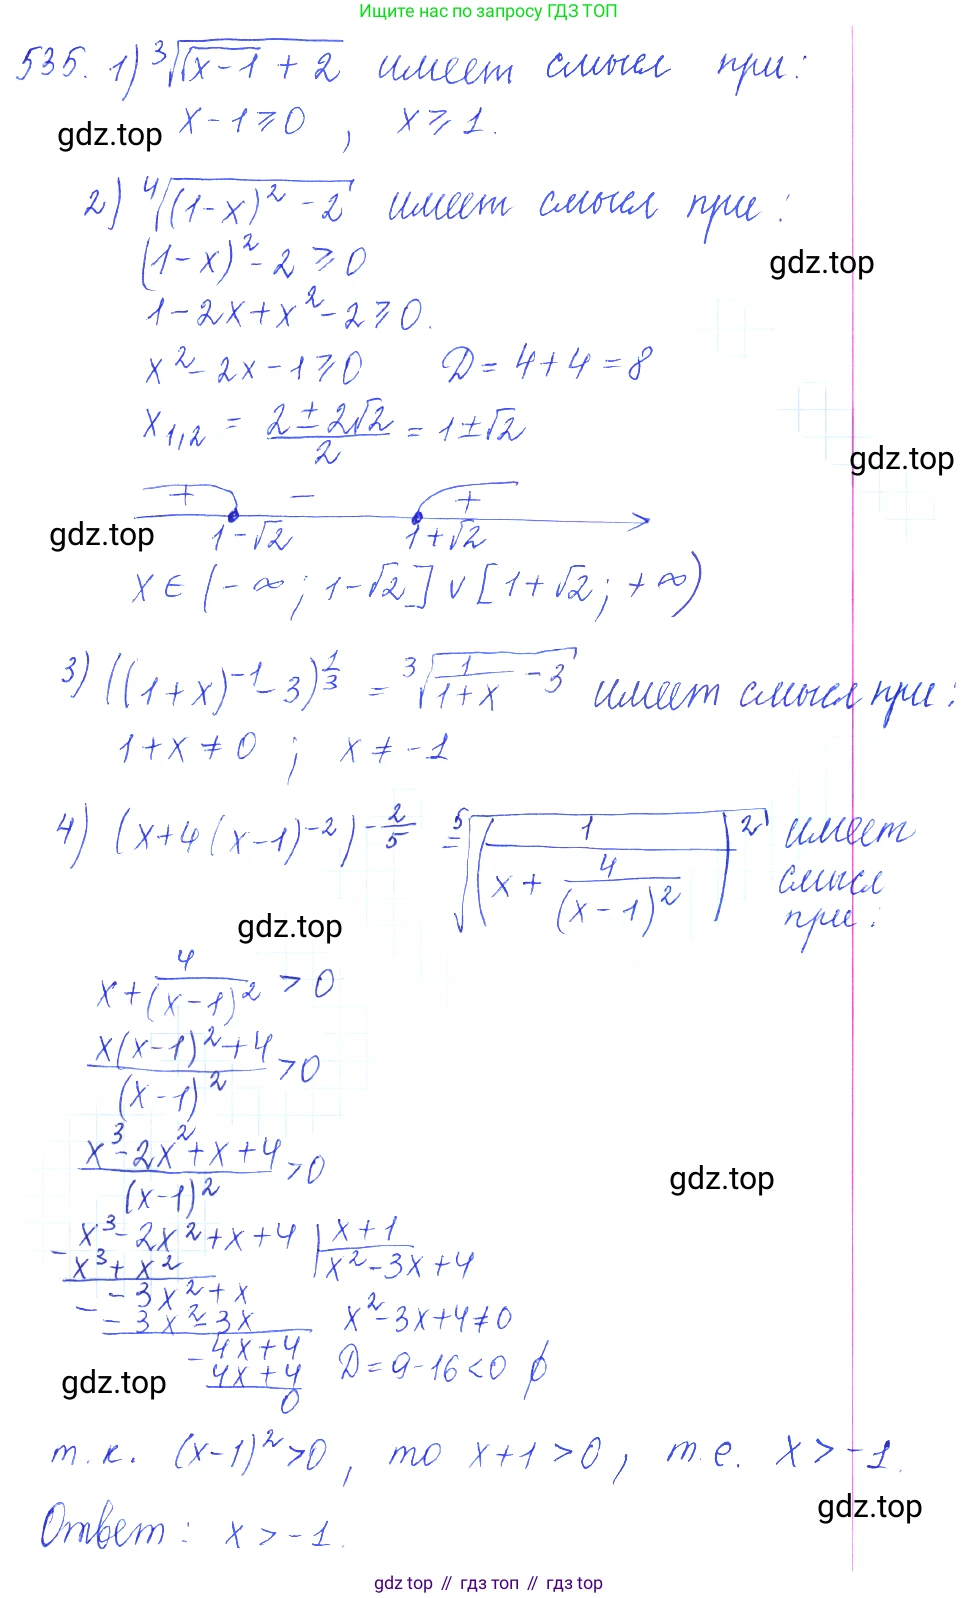 Ищите нас по запросу ГДЗ ТОП
535. 1) ∛(√(x-1) + 2) имеет смысл при:
gdz.top x-1≥0, x≥1.
2) ⁴√((1-x)² - 2) имеет смысл при:
(1-x)² - 2 ≥ 0
gdz.top
1-2x+x²-2≥0.
x²-2x-1≥0 D=4+4=8
x₁,₂ = (2±2√2)/2 = 1±√2
gdz.top
+ - +
gdz.top 1-√2 1+√2
x∈(-∞; 1-√2] ∨ [1+√2; +∞)
3) ((1+x)⁻¹-3)^(1/3) = ∛(1/(1+x) - 3) имеет смысл при:
1+x≠0; x≠-1
4) (x+4(x-1)⁻²)^(-2/5) = ⁵√((1/(x + 4/(x-1)²))²) имеет
смысл
при:
gdz.top
x+4/(x-1)² > 0
(x(x-1)²+4)/(x-1)² >0
(x³-2x²+x+4)/(x-1)² >0
gdz.top
- x³-2x²+x+4 | x+1
x³+x² | x²-3x+4
- -3x²+x
-3x²-3x x²-3x+4≠0
- 4x+4 D=9-16<0 ∅
gdz.top 4x+4
0
т.к. (x-1)²>0, то x+1>0, т.е. x>-1.
gdz.top
Ответ: x>-1.
gdz.top // гдз топ // гдз.top